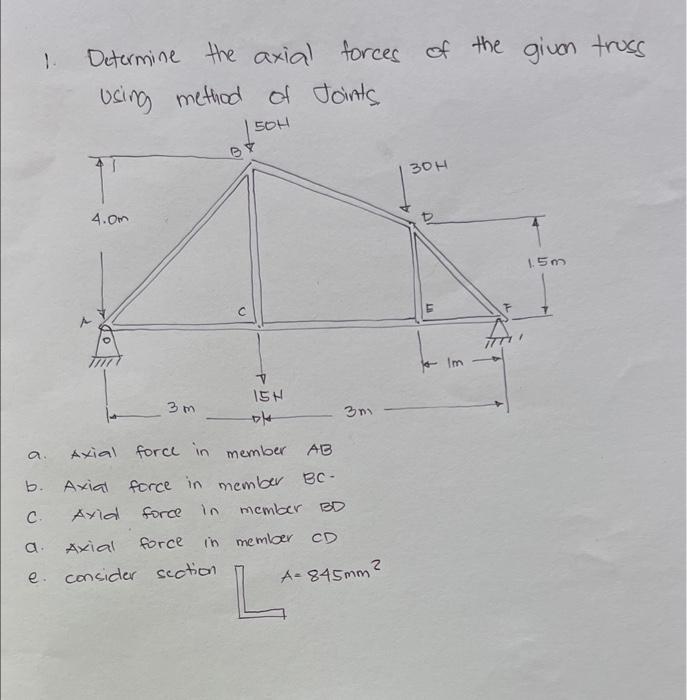 1. Determine the axial forces of the given truss
using method of Joints
50N
B
30N
4.0m
D
1.5m
A
C
E
F
1m
15N
3m
3m
a. Axial force in member AB
b. Axial force in member BC.
c. Axial force in member BD
d. Axial force in member CD
e. consider section
A = 845mm²